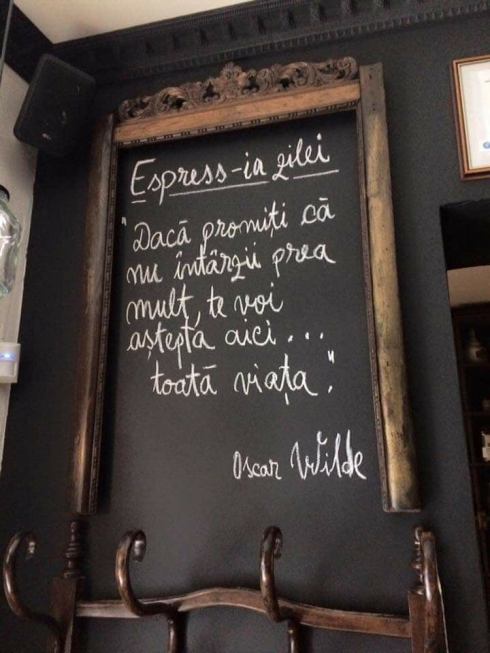 Espress-ia zilei
"Dacă promiți că
nu întârzii prea
mult, te voi
aștepta aici...
toată viața".
Oscar Wilde